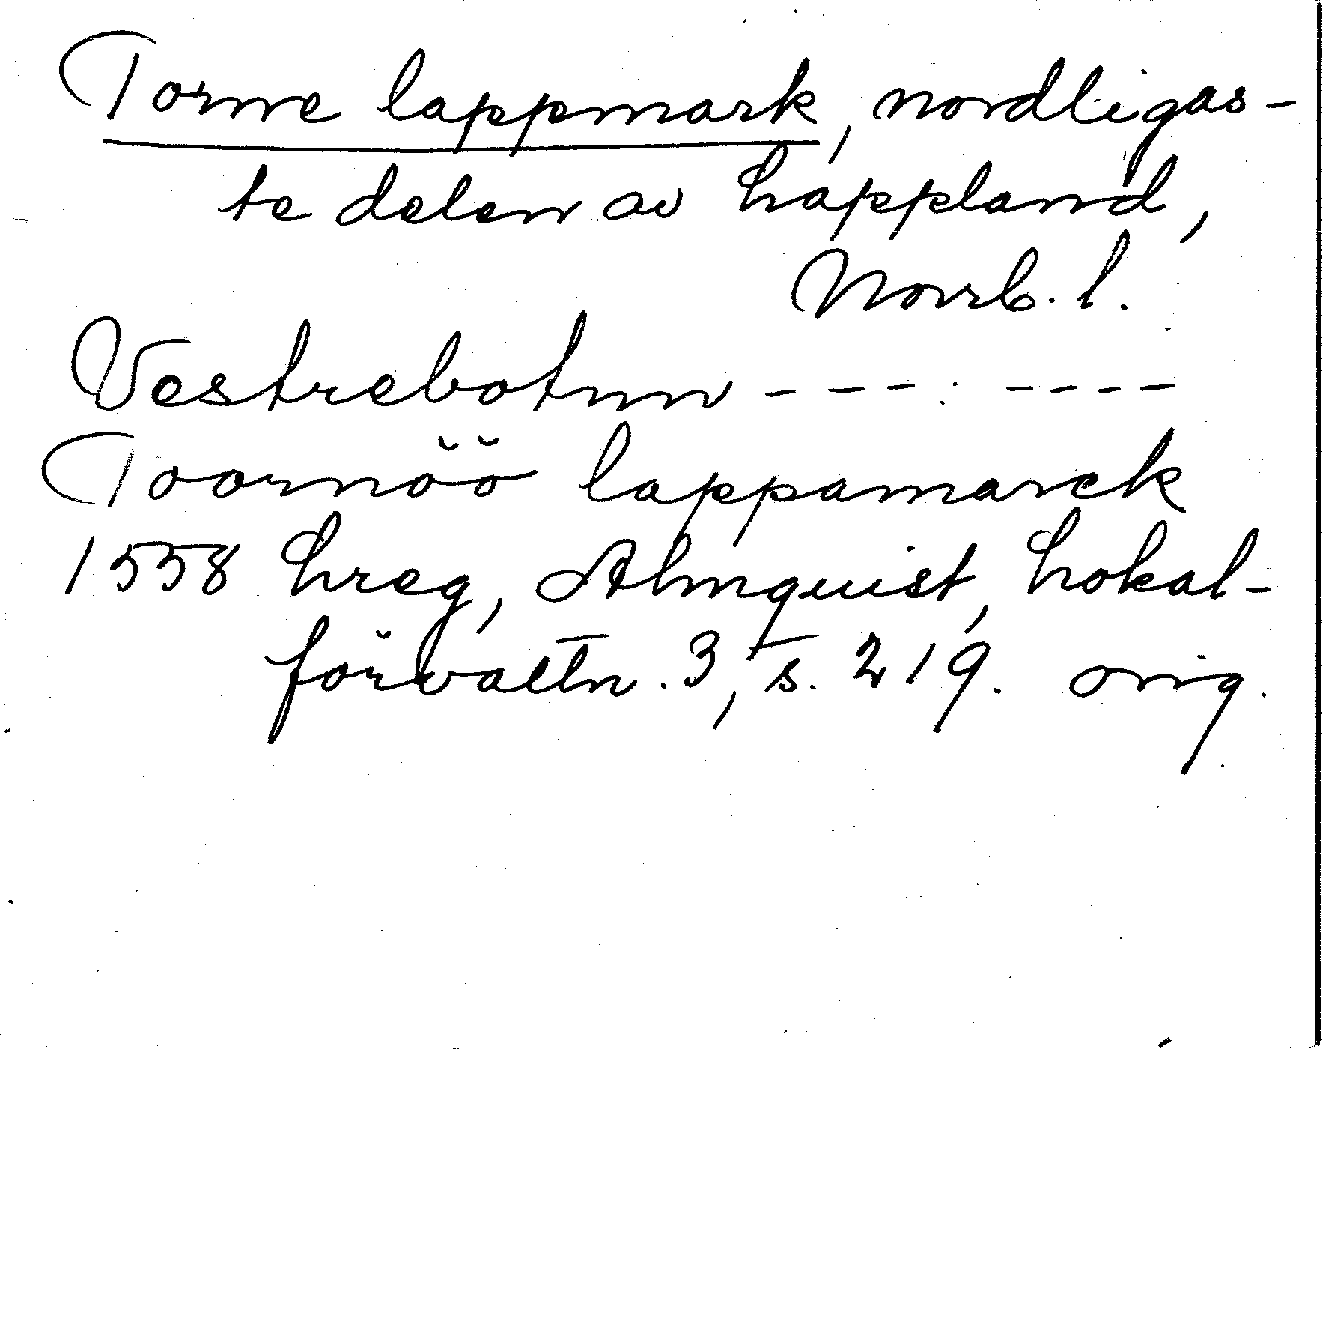 Torne lappmark, nordligas-
te delen av Lappland,
Norrb. l.
Vestrebotnn - - - . - - - -
Toornöö lappamarck
1558 Lreg, Almquist, Lokal-
förvaltn. 3, s. 219. orig.